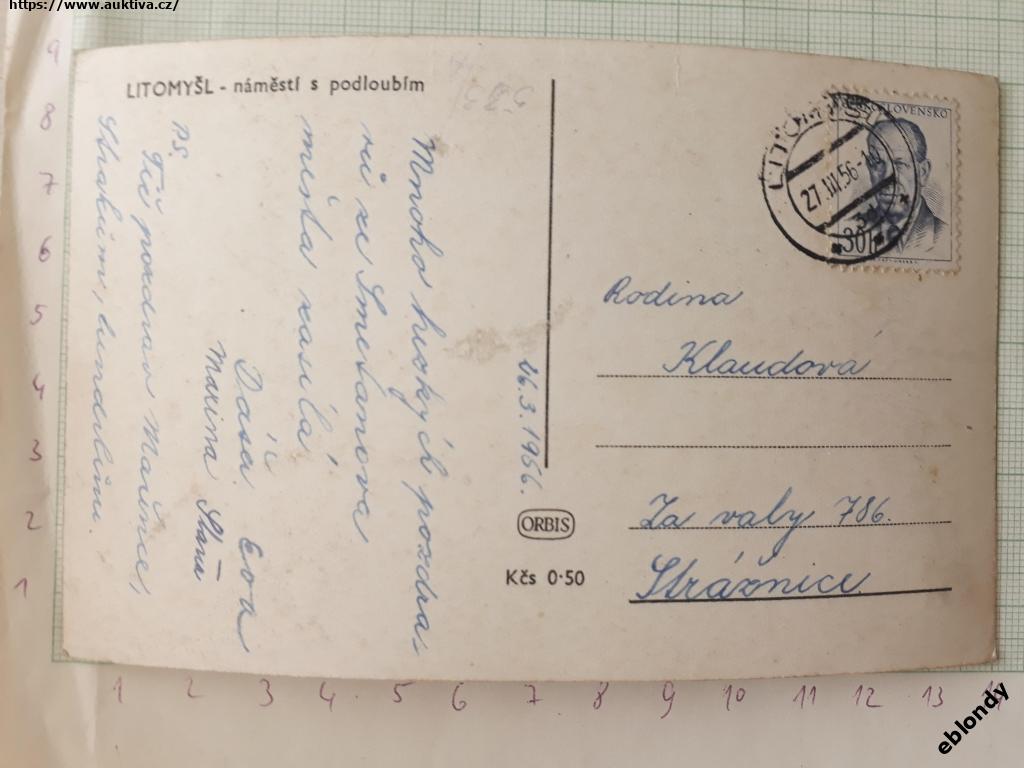 https://www.auktiva.cz/
LITOMYŠL - náměstí s podloubím
Mnoho hezkých pozdra
vů ze Smetanova
města zasílá
Dáša Eva
Maxina Stáňa
PS.
Též pozdrav Mařince,
26.3.1956.
ORBIS
Kčs 0·50
ČESKOSLOVENSKO
LITOMYŠL
27.III.56
30h
Rodina
Klaudová
Za valy 786.
Strážnice
9
8
7
6
5
4
3
2
1
1 2 3 4 5 6 7 8 9 10 11 12 13
eblondy